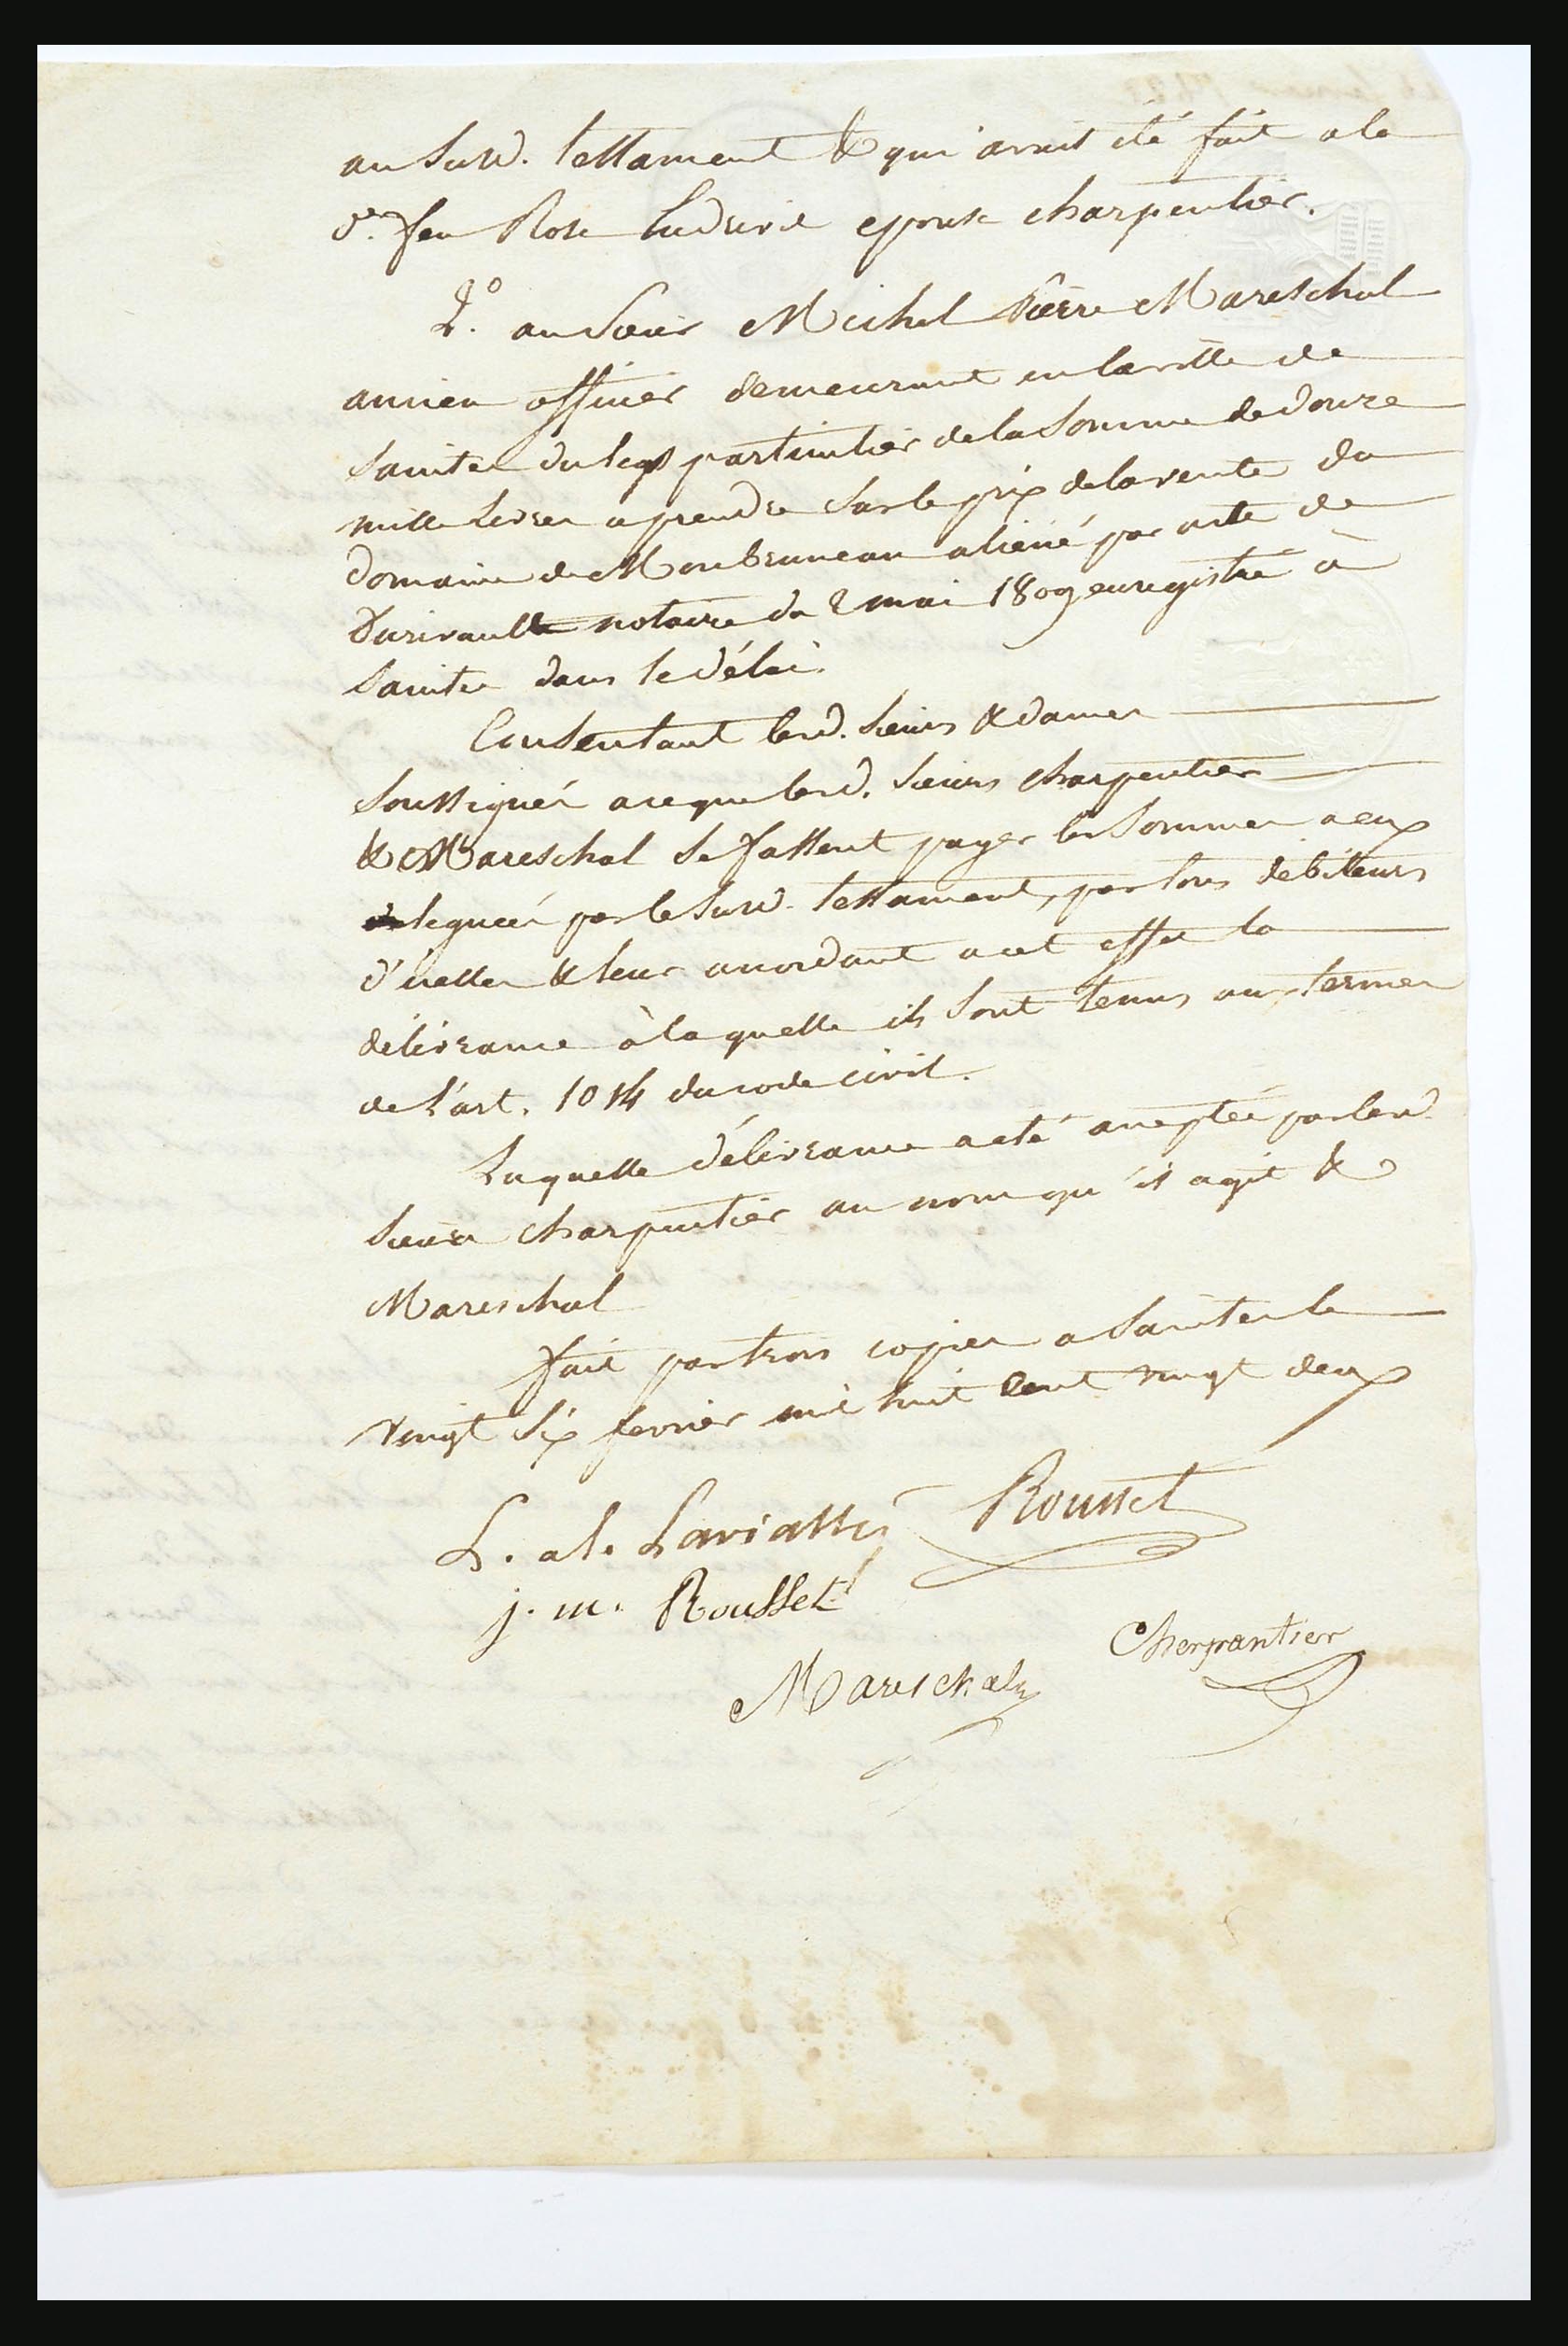 au susd. testament & qui avait été fait a la
de. feu Rose epouse charpentier.
2.° au Sieur Michel Pierre Mareschal
ancien officier demeurant en la ville de
Saintes du legs particulier de la Somme de douze
mille livres a prendre Sur le prix de la vente du
domaine de aliéné par acte de
notaire du 2 mai 1809 enregistré à
Saintes dans le délai.
Consentant lesd. Sieurs & dames
Soussignés a ce que lesd. Sieurs charpentier
& Mareschal Se fassent payer les Sommes a eux
leguées par le Susd. testament, par tous débiteurs
d'icelles & leur accordant a cet effet la
délivrance à la quelle ils Sont tenus aux termes
de l'art. 1014 du code civil.
Laquelle délivrance a eté acceptée par lesd.
Sieurs charpentier au nom qu'il agit &
Mareschal
fait par trois copies a Saintes le
vingt Six fevrier mil huit cent vingt deux
Rousset
j. m. Rousset
Cherpantier
Mareschal